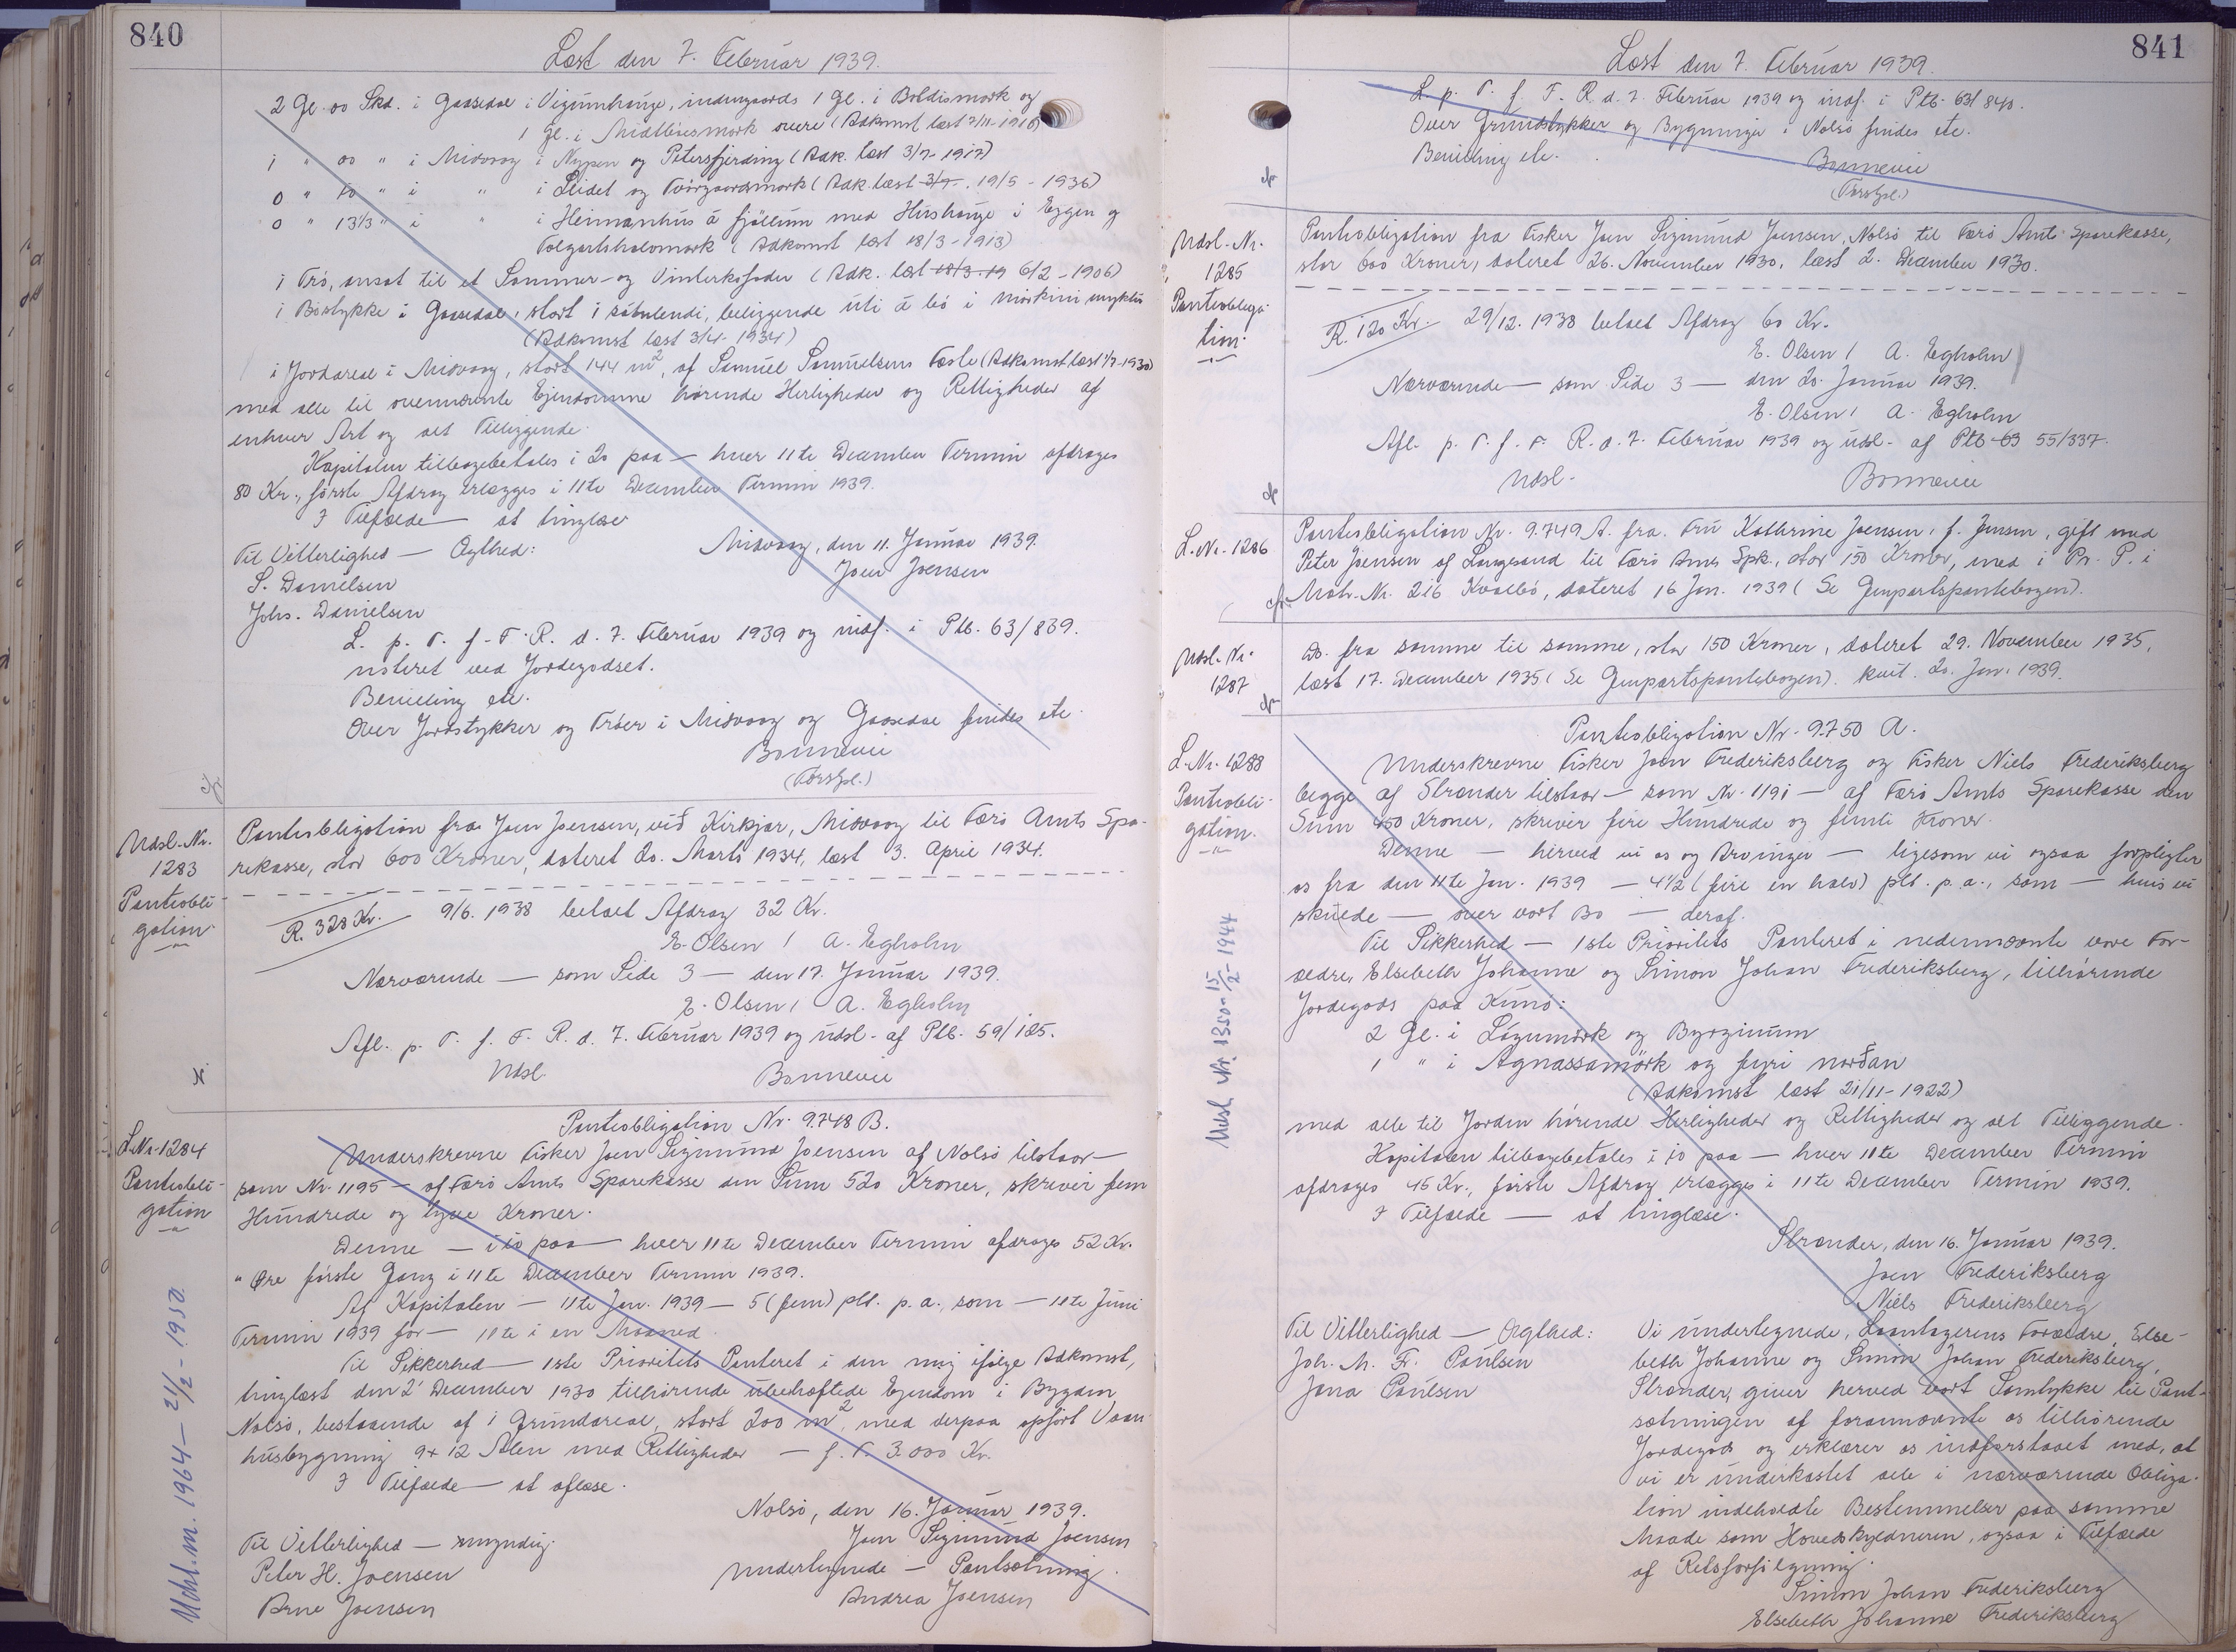 840
Læst den 7. Februar 1939.
2 Gl. 00 Skd. i Gaasedal i Vigunnhauge, indengaards 1 Gl. i Boldismørk og
1 Gl. i Miðlbismørk overe (Adkomst læst 7/11-1916)
1 " 00 " i Midvaag i Nypen og Petersfjerding (Adk. læst 3/7-1917)
0 " 10 " i " i Leidet og Tvørgaardsmørk (Adk. læst 3/7. 19/5-1936)
0 " 13 1/3 " i " i Heimanhus á fjøllum med Hushauge i Eggen og
(Adkomst læst 18/3-1913)
1 Trø, ansat til et Sommer- og Vinterkofoder (Adk. læst 18/3-19 6/2-1906)
1 Bøstykke i Gaasedal, stort 1 sátulendi, beliggende úti á bø i
(Adkomst læst 3/4-1934)
1 Jordareal i Midvaag, stort 144 m2, af Samuel Samuelsens Fæste (Adkomst læst 1/7-1930)
med alle til ovennævnte Ejendomme hørende Herligheder og Rettigheder af
enhver Art og alt Tilliggende.
Kapitalen tilbagebetales i 20 paa — hver 11te December Termin afdrages
80 Kr., første Afdrag erlægges i 11te December Termin 1939.
I Tilfælde — at tinglæse
Midvaag, den 11. Januar 1939.
Til Vitterlighed — Ægthed:
Joen Joensen
S. Danielsen
Johs. Danielsen
L. p. T. f. F. R. d. 7. Februar 1939 og indf. i Ptb. 63/839.
noteret ved Jordegodset.
Bevilling etc.
Over Jordstykker og Trøer i Midvaag og Gaasedal findes etc.
Bonnevie
(Forstpl.)
Udsl.-Nr.
1283
Panteobli-
gation.
Panteobligation fra Joen Joensen, við Kirkjar, Midvaag til Færø Amts Spa-
rekasse, stor 600 Kroner, dateret 20. Marts 1934, læst 3. April 1934.
R. 328 Kr. 9/6. 1938 betalt Afdrag 32 Kr.
E. Olsen / A. Egholm
Nærværende — som Side 3 — den 17. Januar 1939.
E. Olsen / A. Egholm
Afl. p. T. f. F. R. d. 7. Februar 1939 og udsl. af Ptb. 59/125.
Udsl. Bonnevie
Panteobligation Nr. 9.748 B.
L.Nr. 1284
Panteobli-
gation
Underskrevne Fisker Joen Sigmund Joensen af Nolsø tilstaar —
som Nr. 1195 — af Færø Amts Sparekasse den Sum 520 Kroner, skriver fem
Hundrede og tyve Kroner.
Denne — i 10 paa — hver 11te December Termin afdrages 52 Kr.
" Øre første Gang i 11te December Termin 1939.
Af Kapitalen — 11te Jan. 1939 — 5 (fem) pCt. p. a., som — 11te Juni
Termin 1939 for — 11te i en Maaned.
Til Sikkerhed — 1ste Prioritets Panteret i den mig ifølge Adkomst,
tinglæst den 2' December 1930 tilhørende ubehæftede Ejendom i Bygden
Nolsø, bestaaende af 1 Grundareal, stort 200 m2, med derpaa opført Vaan-
husbygning 9 x 12 Alen med Rettigheder — f. T. 3.000 Kr.
I Tilfælde — at aflæse.
Nolsø, den 16. Januar 1939.
Til Vitterlighed — myndig.
Joen Sigmund Joensen
Peter H. Joensen
Undertegnede — Pantsætning.
Arne Joensen
Andrea Joensen
Udsl. m. 1964 — 21/2-1950.
841
Læst den 7. Februar 1939.
L. p. T. f. F. R. d. 7. Februar 1939 og indf. i Ptb. 63/840.
Over Grundstykker og Bygninger i Nolsø findes etc.
Bevilling etc.
Bonnevie
(Forstpl.)
Udsl.-Nr.
1285
Panteobliga-
tion.
Panteobligation fra Fisker Joen Sigmund Joensen, Nolsø til Færø Amts Sparekasse,
stor 600 Kroner, dateret 26. November 1930, læst 2. December 1930.
R. 120 Kr. 29/12. 1938 betalt Afdrag 60 Kr.
E. Olsen / A. Egholm
Nærværende — som Side 3 — den 20. Januar 1939.
E. Olsen / A. Egholm
Afl. p. T. f. F. R. d. 7. Februar 1939 og udsl. af Ptb 63 55/337.
Udsl. Bonnevie
L.Nr. 1286
Panteobligation Nr. 9.749 A. fra Fru Kathrine Joensen, f. Jensen, gift med
Peter Joensen af Langesand til Færø Amts Spk., stor 150 Kroner, med i Pr. P. i
Matr.-Nr. 216 Kvalbø, dateret 16 Jan. 1939 (Se Genpartspantebogen).
Udsl. Nr.
1287
Do. fra samme til samme, stor 150 Kroner, dateret 29. November 1935,
læst 17. December 1935 (Se Genpartspantebogen). kvit. 20. Jan. 1939.
Panteobligation Nr. 9.750 A.
L.Nr. 1288
Panteobli-
gation.
Underskrevne Fisker Joen Frederiksberg og Fisker Niels Frederiksberg
begge af Strænder tilstaar — som Nr. 1191 — af Færø Amts Sparekasse den
Sum 450 Kroner, skriver fire Hundrede og femti Kroner.
Denne — herved vi os og Arvinger — ligesom vi ogsaa forpligter
os fra den 11te Jan. 1939 — 4 1/2 (fire en halv) pCt. p. a., som — hvis vi
skulde — over vort Bo — deraf.
Til Sikkerhed — 1ste Prioritets Panteret i nedennævnte vore For-
ældre, Elsebeth Johanne og Simon Johan Frederiksberg, tilhørende
Jordegods paa Kunø:
2 Gl. i Løgumørk og Byrginum
1 " i Agnassamørk og fyri norðan
(Adkomst læst 21/11-1922)
med alle til Jorden hørende Herligheder og Rettigheder og alt Tilliggende.
Kapitalen tilbagebetales i 10 paa — hver 11te December Termin
afdrages 45 Kr., første Afdrag erlægges i 11te December Termin 1939.
I Tilfælde — at tinglæse.
Strænder, den 16. Januar 1939.
Joen Frederiksberg
Niels Frederiksberg
Til Vitterlighed — Ægthed:
Joh. M. Fr. Poulsen
Jona Poulsen
Vi undertegnede, Laantagerens Forældre, Else-
beth Johanne og Simon Johan Frederiksberg,
Strænder, giver herved vort Samtykke til Pant-
sætningen af forannævnte os tilhørende
Jordegods og erklærer os indforstaaet med, at
vi er underkastet alle i nærværende Obliga-
tion indeholdte Bestemmelser paa samme
Maade som Hovedskyldneren, ogsaa i Tilfælde
af Retsforfølgning.
Simon Johan Frederiksberg
Elsebeth Johanne Frederiksberg
Udsl. Nr. 1350 - 15/2-1944